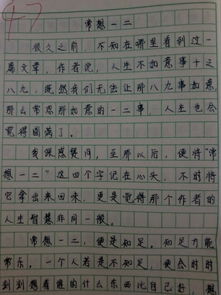 47
常想一二
很久之前，不知在哪里看到过一
篇文章，作者说，人生不如意事十之
八九，既然我们无法让那八九事如意，
那么常想那如意的一二事，人生也会
觉得圆满了。
我深感赞同，至那以后，便将“常
想一二”这四个字记在心头，不时将
它拿出来回味，更是觉得那个作者的
人生智慧非同一般。
常想一二，便是知足，知足方能
常乐，一个人若是不知足，便会时时
刻刻想着谁的什么东西比自己好，